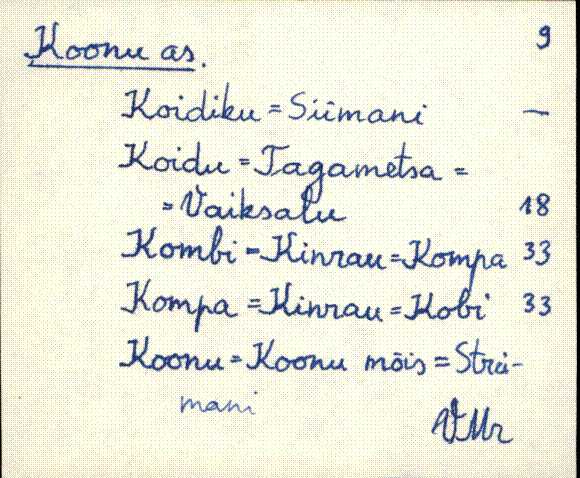 Koonu as. 9
Koidiku = Siimani —
Koidu = Tagametsa =
= Vaiksalu 18
Kombi = Kinrau = Kompa 33
Kompa = Kinrau = Kobi 33
Koonu = Koonu mõis = Strü-
mani
VMr